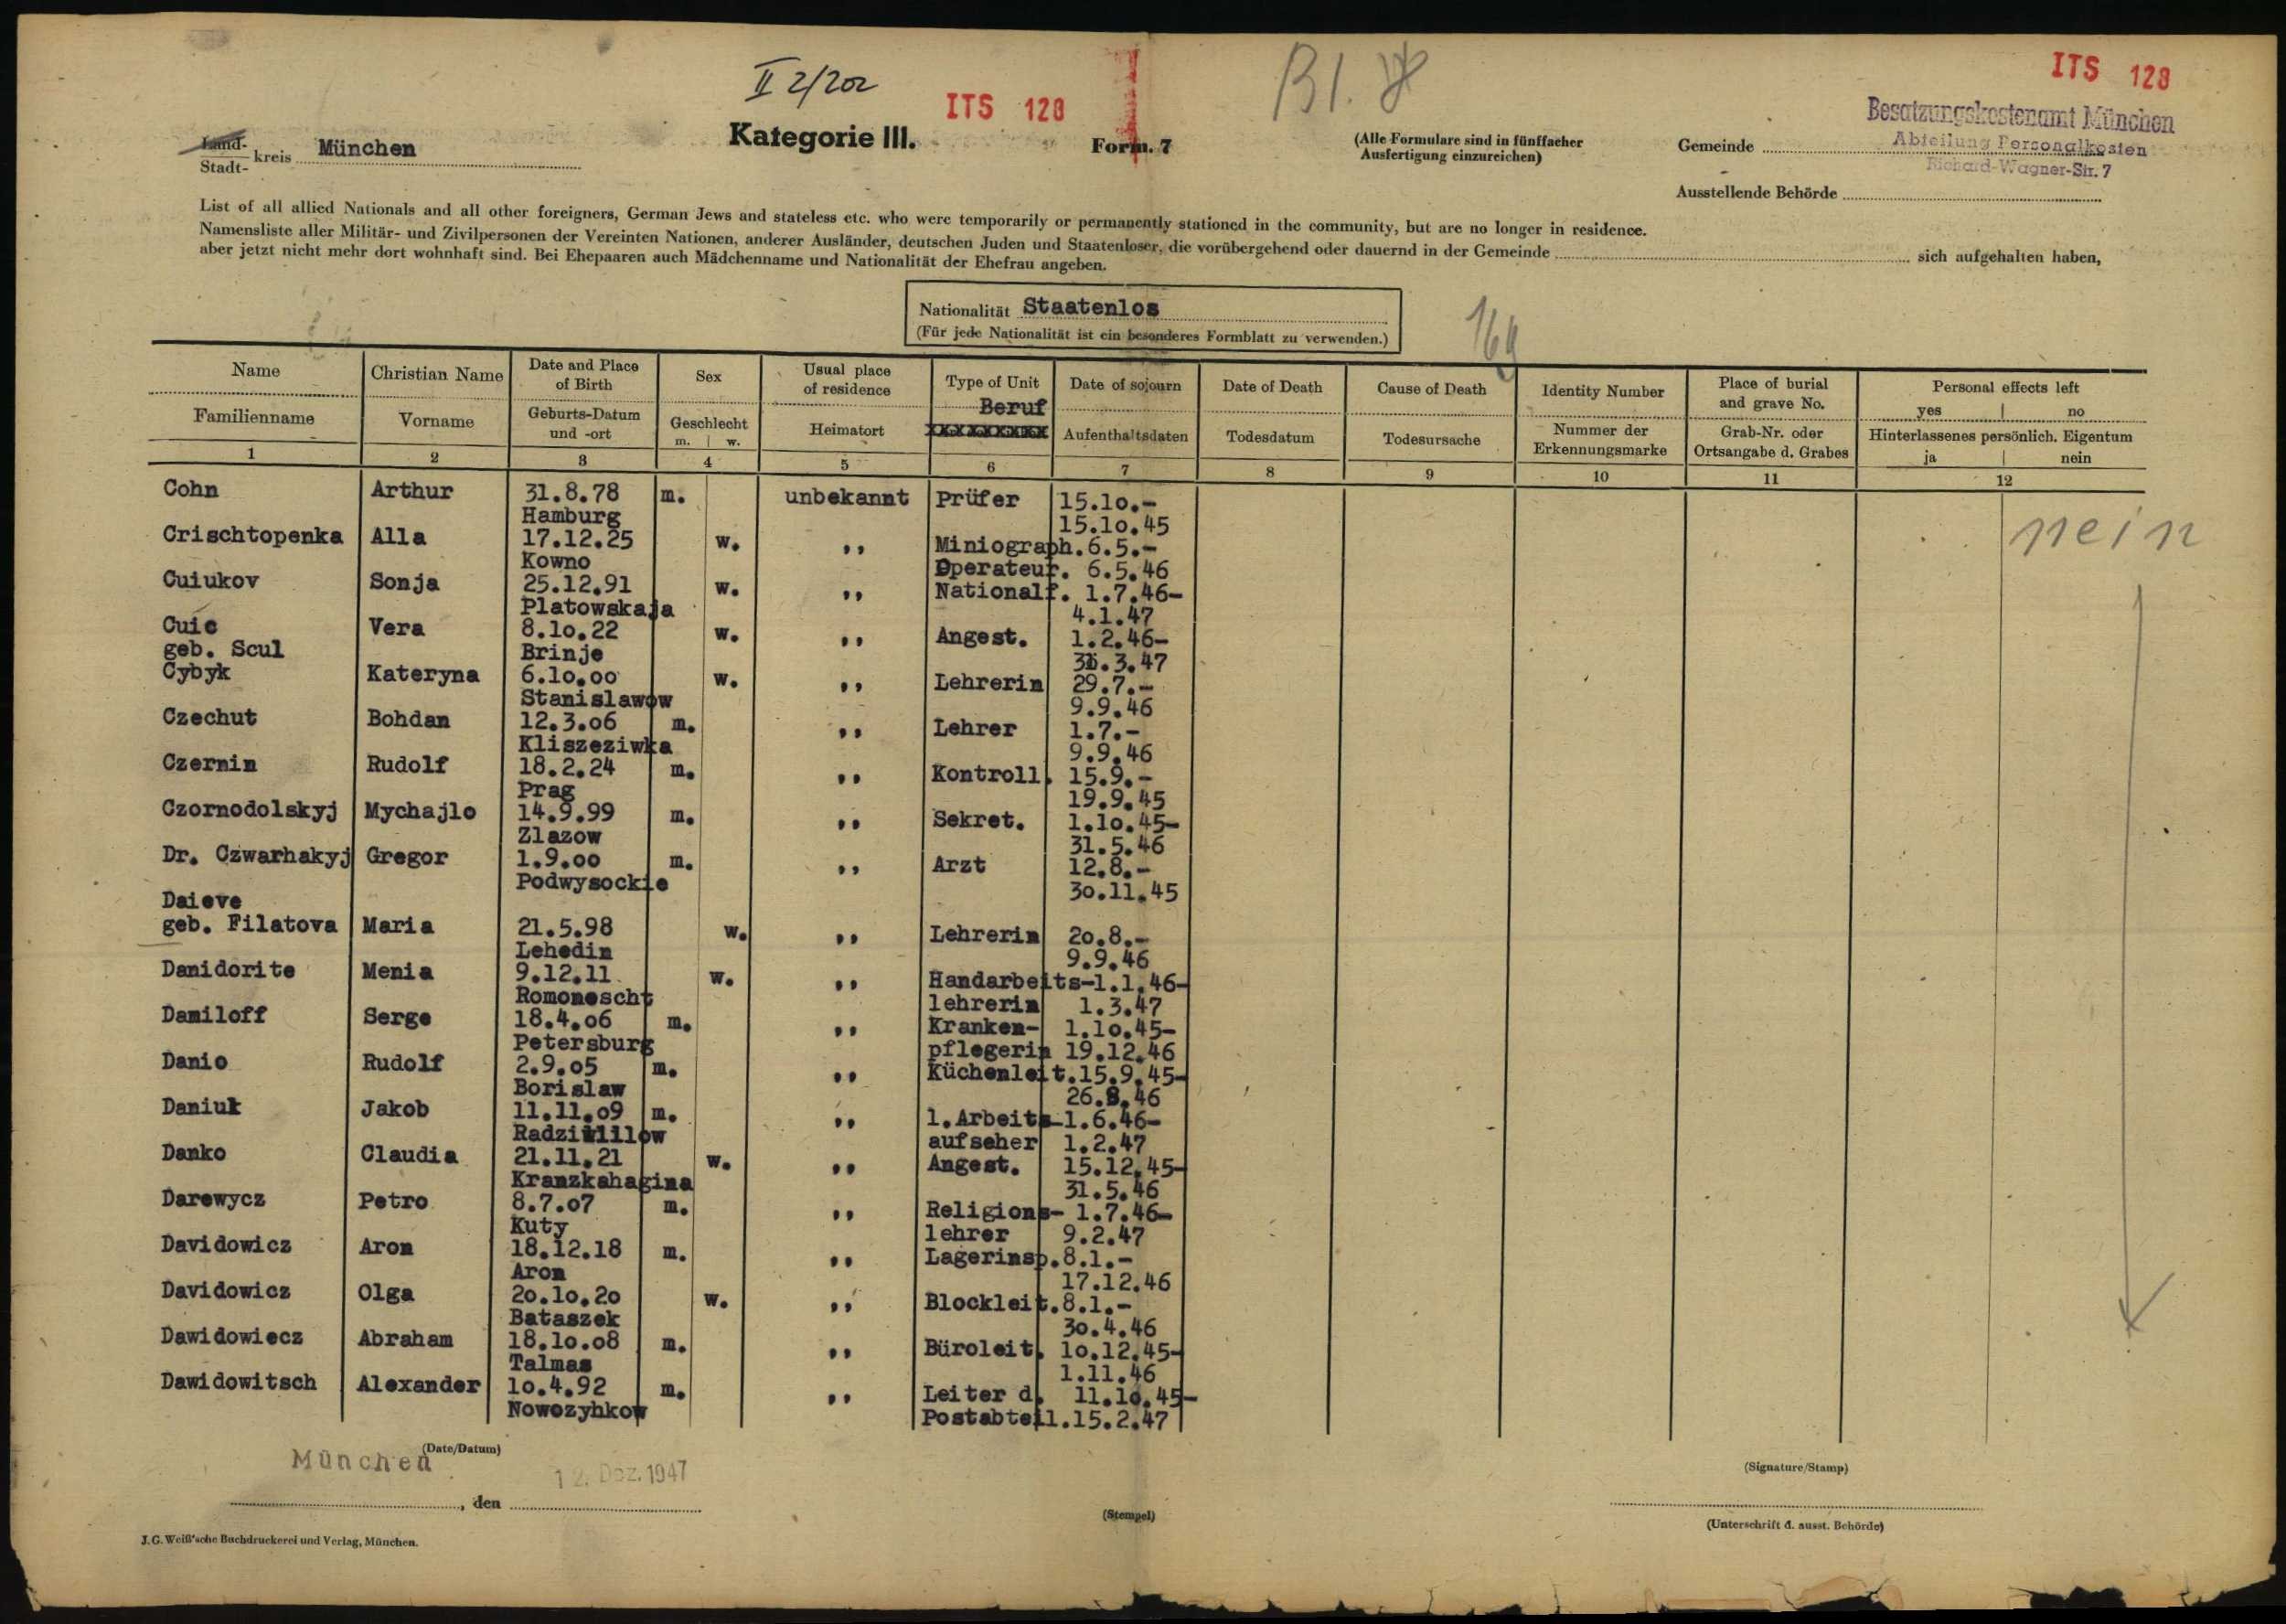 II 2/202
ITS 128
Bl. 8
ITS 128
Besatzungskostenamt München
Abteilung Personalkosten
Richard-Wagner-Str. 7
Land-
Stadt- kreis München
Kategorie III.
Form. 7
(Alle Formulare sind in fünffacher
Ausfertigung einzureichen)
Gemeinde
Ausstellende Behörde
List of all allied Nationals and all other foreigners, German Jews and stateless etc. who were temporarily or permanently stationed in the community, but are no longer in residence.
Namensliste aller Militär- und Zivilpersonen der Vereinten Nationen, anderer Ausländer, deutschen Juden und Staatenloser, die vorübergehend oder dauernd in der Gemeinde sich aufgehalten haben,
aber jetzt nicht mehr dort wohnhaft sind. Bei Ehepaaren auch Mädchenname und Nationalität der Ehefrau angeben.
Nationalität Staatenlos
(Für jede Nationalität ist ein besonderes Formblatt zu verwenden.)
Name Christian Name Date and Place of Birth Sex Usual place of residence Type of Unit Date of sojourn Date of Death Cause of Death Identity Number Place of burial and grave No. Personal effects left yes no
Familienname Vorname Geburts-Datum und -ort Geschlecht m. w. Heimatort Beruf Aufenthaltsdaten Todesdatum Todesursache Nummer der Erkennungsmarke Grab-Nr. oder Ortsangabe d. Grabes Hinterlassenes persönlich. Eigentum ja nein
1 2 3 4 5 6 7 8 9 10 11 12
Cohn Arthur 31.8.78 m. unbekannt Prüfer 15.10.-
Hamburg 15.10.45
Crischtopenka Alla 17.12.25 w. ,, Miniograph. 6.5.- nein
Kowno Operateur. 6.5.46
Cuiukov Sonja 25.12.91 w. ,, Nationalf. 1.7.46-
Platowskaja 4.1.47
Cuic Vera 8.10.22 w. ,, Angest. 1.2.46-
geb. Scul Brinje 31.3.47
Cybyk Kateryna 6.10.00 w. ,, Lehrerin 29.7.-
Stanislawow 9.9.46
Czechut Bohdan 12.3.06 m. ,, Lehrer 1.7.-
Kliszeziwka 9.9.46
Czernin Rudolf 18.2.24 m. ,, Kontroll. 15.9.-
Prag 19.9.45
Czornodolskyj Mychajlo 14.9.99 m. ,, Sekret. 1.10.45-
Zlazow 31.5.46
Dr. Czwarhakyj Gregor 1.9.00 m. ,, Arzt 12.8.-
Podwysockie 30.11.45
Daieve
geb. Filatova Maria 21.5.98 w. ,, Lehrerin 20.8.-
Lehedin 9.9.46
Danidorite Menia 9.12.11 w. ,, Handarbeits-1.1.46-
Romonescht lehrerin 1.3.47
Daniloff Serge 18.4.06 m. ,, Kranken- 1.10.45-
Petersburg pflegerin 19.12.46
Danio Rudolf 2.9.05 m. ,, Küchenleit.15.9.45-
Borislaw 26.8.46
Daniuk Jakob 11.11.09 m. ,, 1.Arbeits-1.6.46-
Radziwillow aufseher 1.2.47
Danko Claudia 21.11.21 w. ,, Angest. 15.12.45-
Kranzkahagina 31.5.46
Darewycz Petro 8.7.07 m. ,, Religions- 1.7.46-
Kuty lehrer 9.2.47
Davidowicz Aron 18.12.18 m. ,, Lagerinsp.8.1.-
Aron 17.12.46
Davidowicz Olga 20.10.20 w. ,, Blockleit.8.1.-
Bataszek 30.4.46
Dawidowiecz Abraham 18.10.08 m. ,, Büroleit. 10.12.45-
Talmas 1.11.46
Dawidowitsch Alexander 10.4.92 m. ,, Leiter d. 11.10.45-
Nowozyhkow Postabteil.15.2.47
(Date/Datum)
München 12. Dez. 1947
, den
(Stempel)
(Signature/Stamp)
(Unterschrift d. ausst. Behörde)
J. G. Weiß'sche Buchdruckerei und Verlag, München.